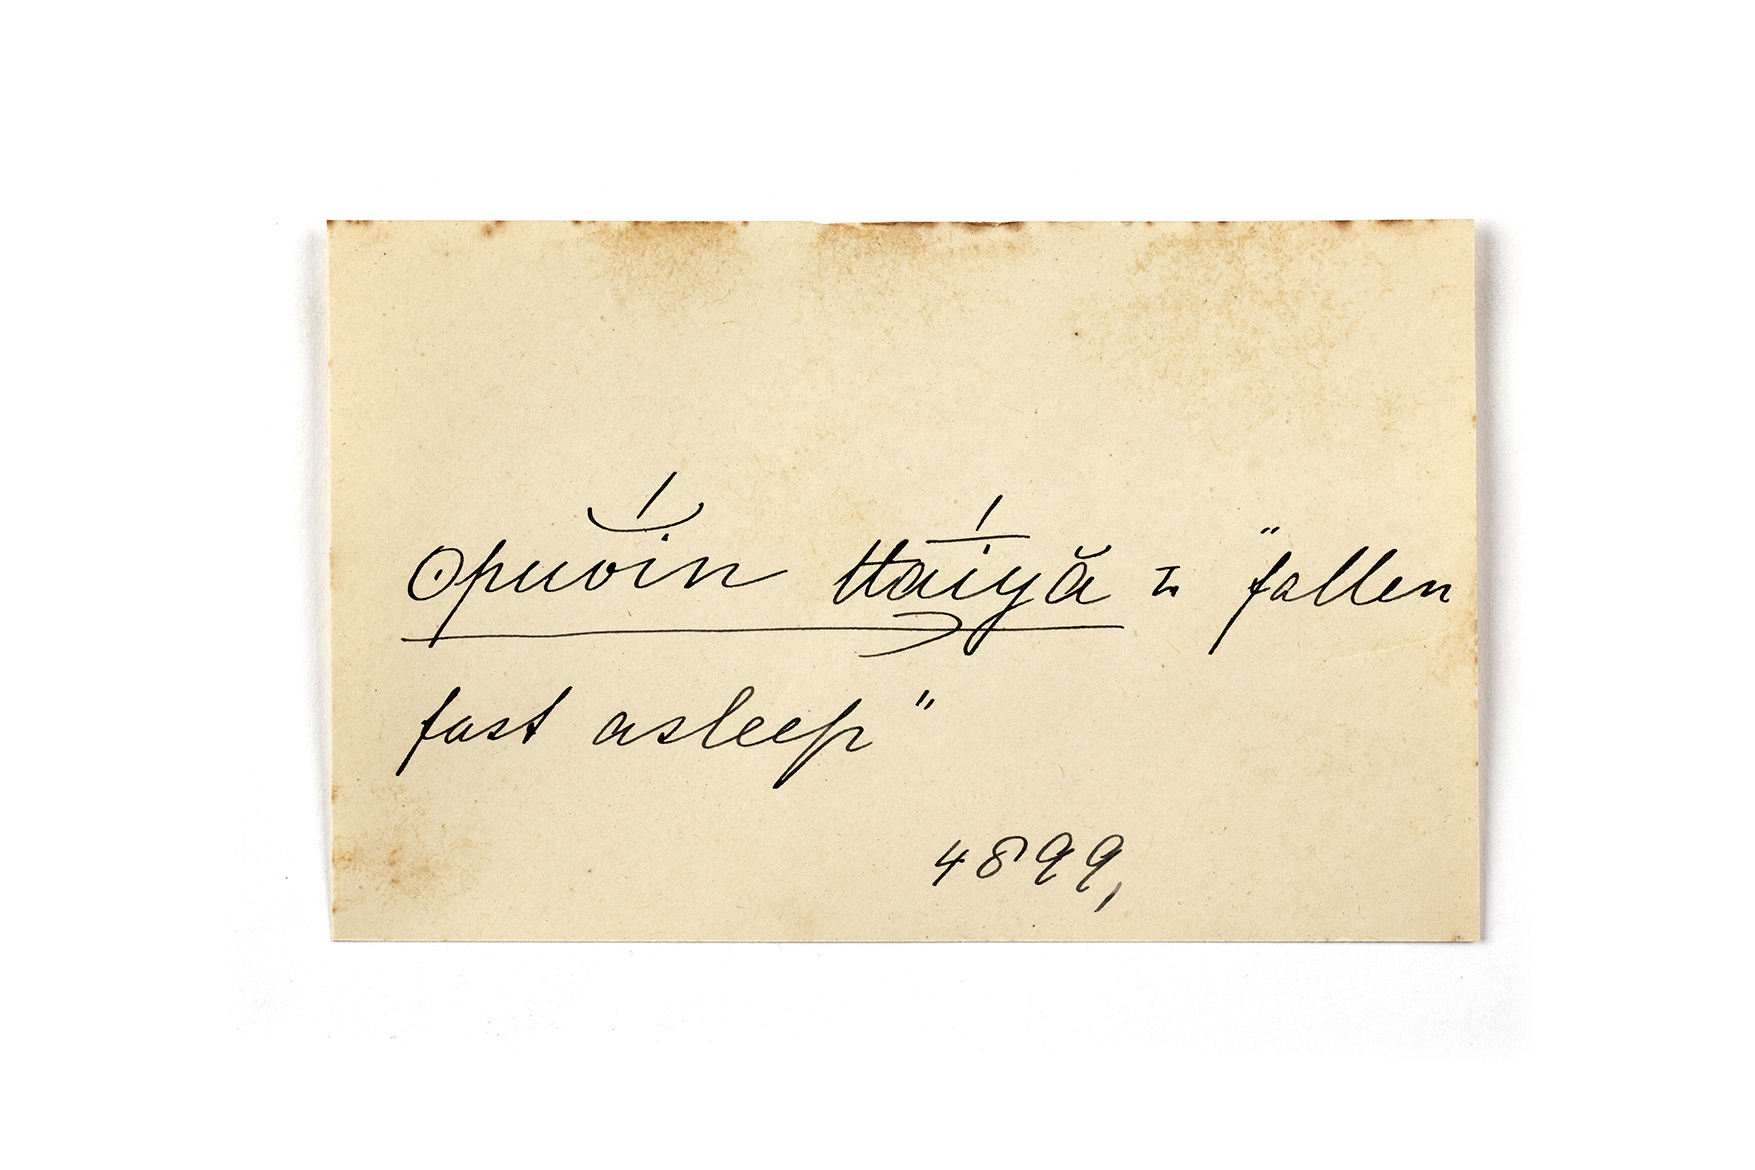 opuŏ́in ttāíyă = "fallen
fast asleep"
4899,